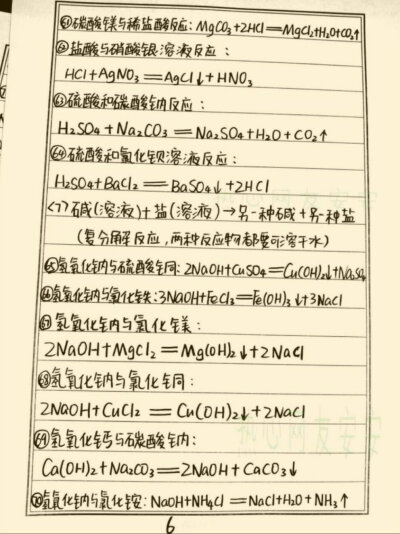 61碳酸镁与稀盐酸反应: MgCO₃+2HCl═MgCl₂+H₂O+CO₂↑
62盐酸与硝酸银溶液反应:
HCl+AgNO₃═AgCl↓+HNO₃
63硫酸和碳酸钠反应:
H₂SO₄+Na₂CO₃═Na₂SO₄+H₂O+CO₂↑
64硫酸和氯化钡溶液反应:
H₂SO₄+BaCl₂═BaSO₄↓+2HCl
<7>碱(溶液)+盐(溶液)→另一种碱+另一种盐
(复分解反应,两种反应物都要可溶于水)
65氢氧化钠与硫酸铜: 2NaOH+CuSO₄═Cu(OH)₂↓+Na₂SO₄
66氢氧化钠与氯化铁: 3NaOH+FeCl₃═Fe(OH)₃↓+3NaCl
67氢氧化钠与氯化镁:
2NaOH+MgCl₂═Mg(OH)₂↓+2NaCl
68氢氧化钠与氯化铜:
2NaOH+CuCl₂═Cu(OH)₂↓+2NaCl
69氢氧化钙与碳酸钠:
Ca(OH)₂+Na₂CO₃═2NaOH+CaCO₃↓
70氢氧化钠与氯化铵: NaOH+NH₄Cl═NaCl+H₂O+NH₃↑
6
热心网友安安